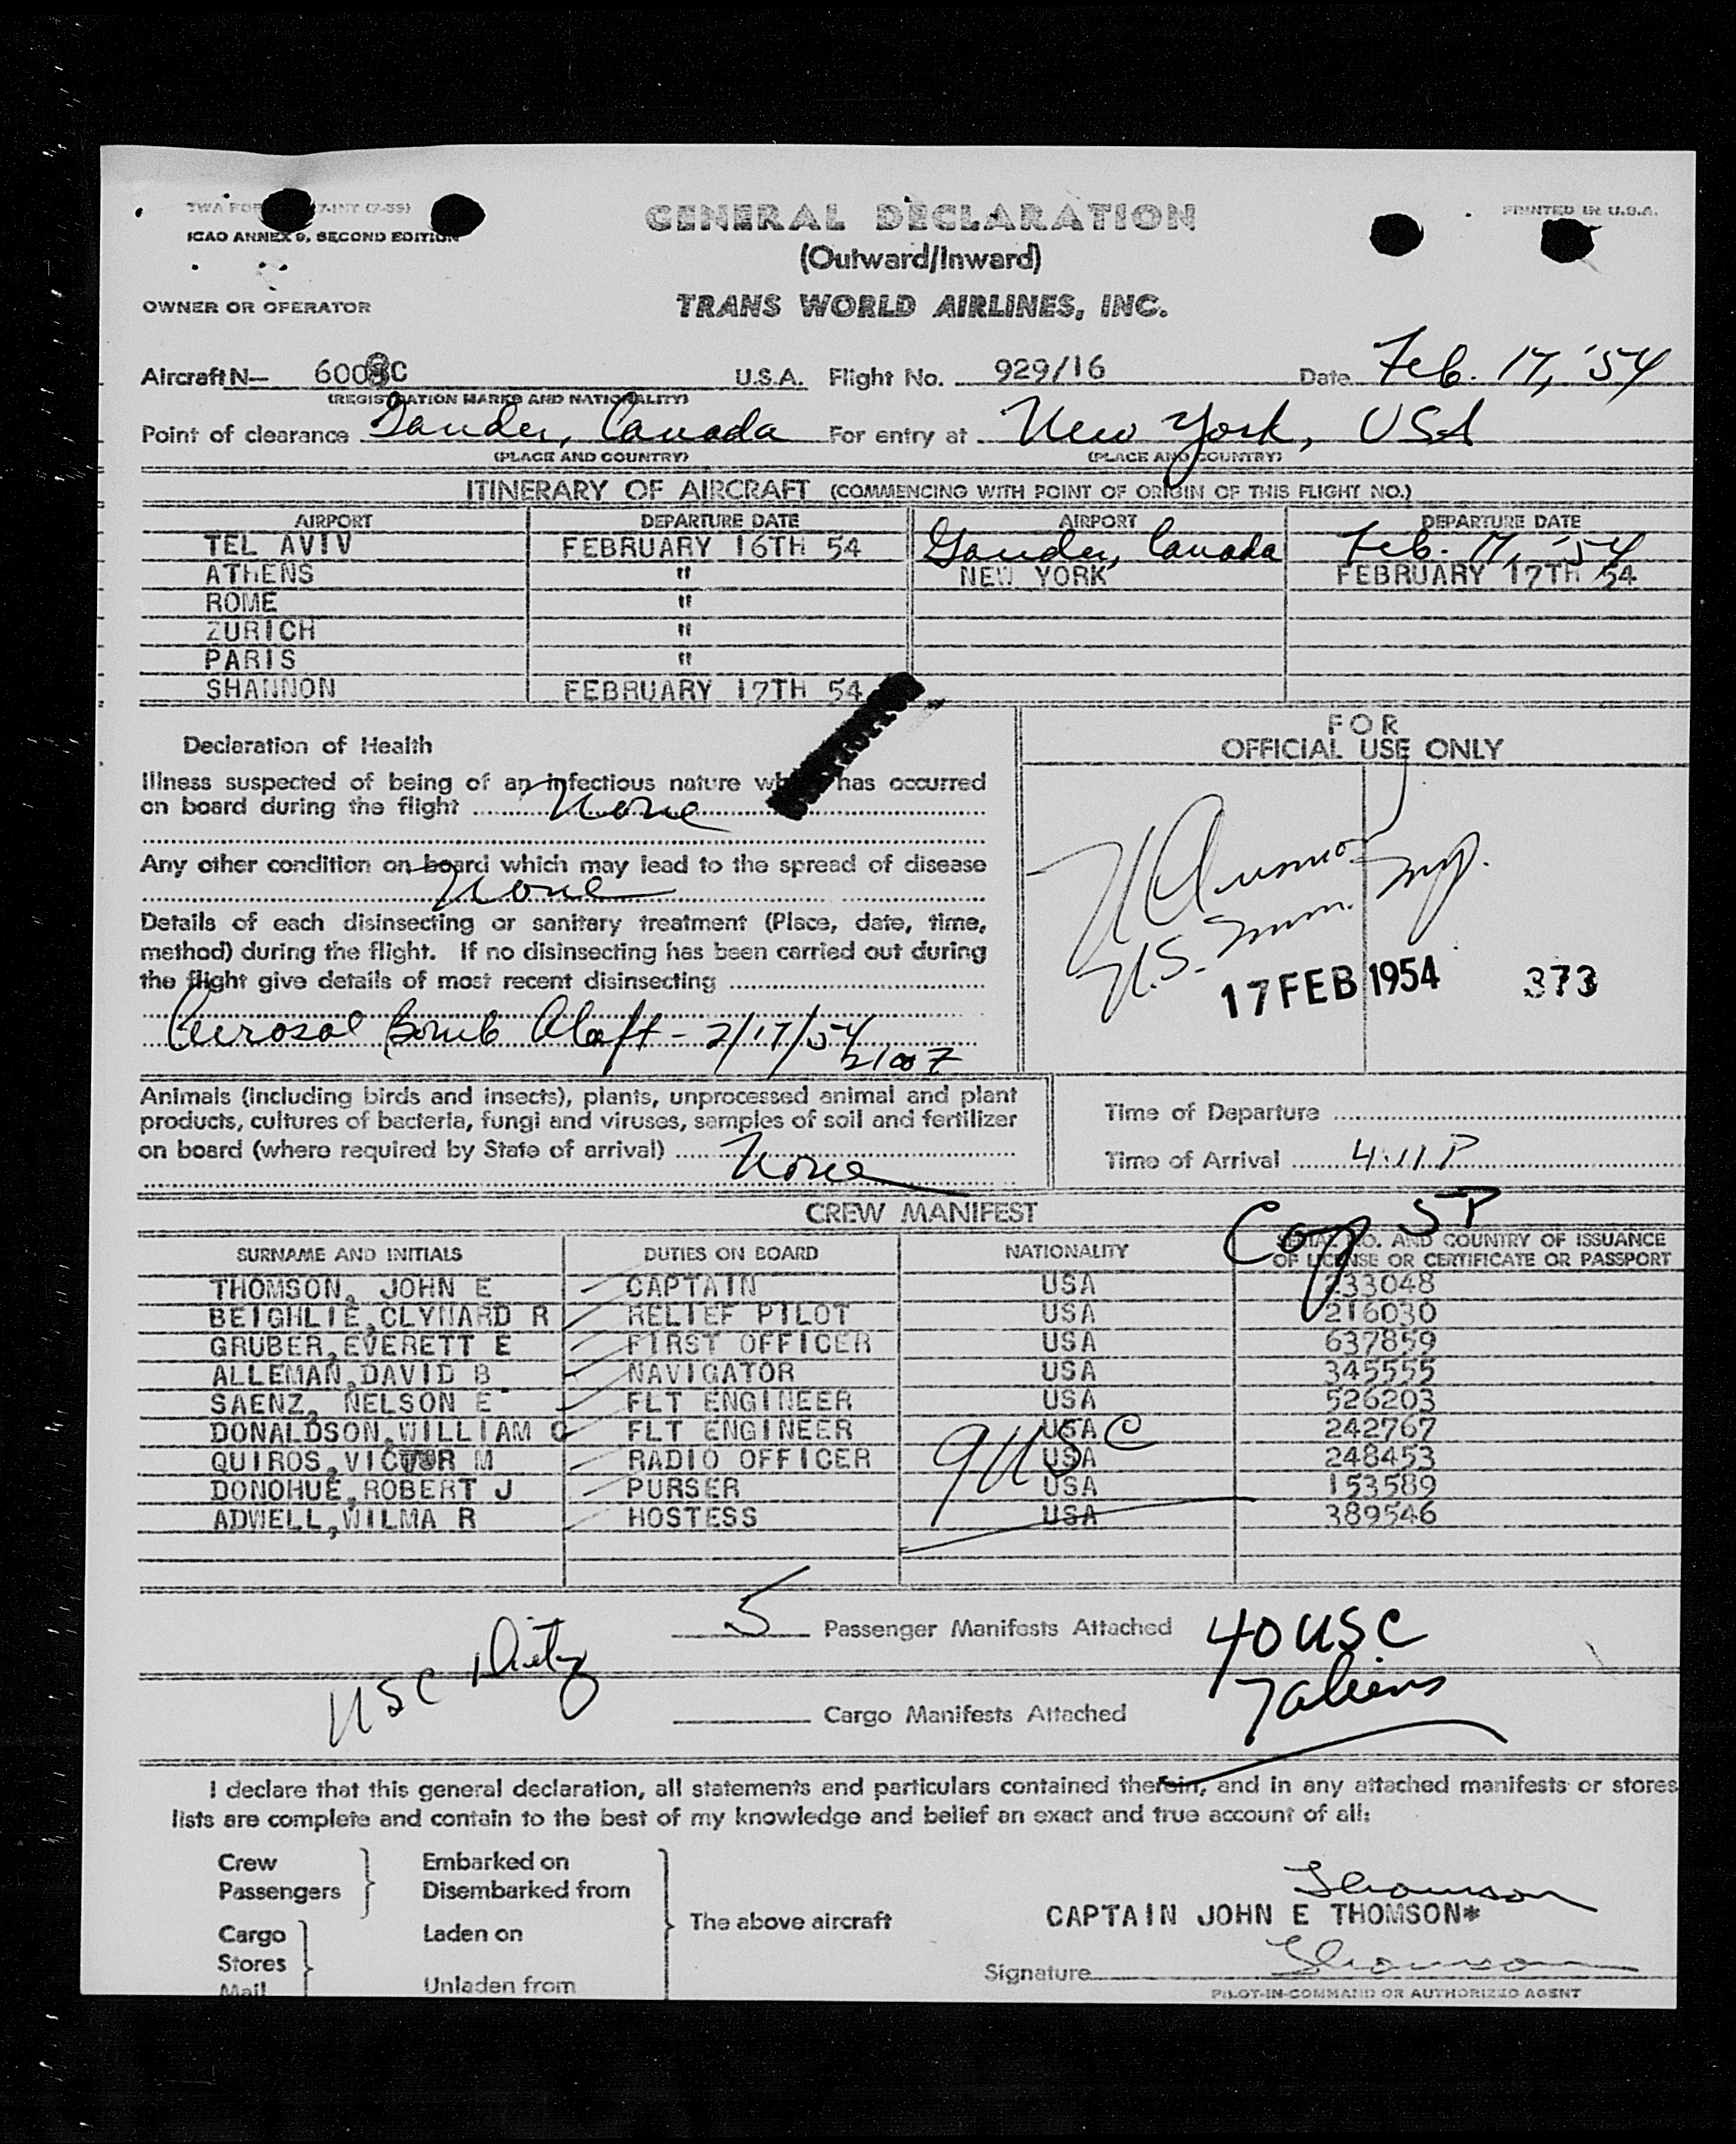 GENERAL DECLARATION
PRINTED IN U.S.A.
ICAO ANNEX 9, SECOND EDITION
(Outward/Inward)
OWNER OR OPERATOR
TRANS WORLD AIRLINES, INC.
Aircraft N— C U.S.A. Flight No. 929/16 Date Feb. 17, '54
(REGISTRATION MARKS AND NATIONALITY)
Point of clearance Gander, Canada For entry at New York, USA
(PLACE AND COUNTRY) (PLACE AND COUNTRY)
ITINERARY OF AIRCRAFT (COMMENCING WITH POINT OF ORIGIN OF THIS FLIGHT NO.)
AIRPORT DEPARTURE DATE AIRPORT DEPARTURE DATE
TEL AVIV FEBRUARY 16TH 54 Gander, Canada Feb. 17, '54
ATHENS " NEW YORK FEBRUARY 17TH 54
ROME "
ZURICH "
PARIS "
SHANNON FEBRUARY 17TH 54
FOR
OFFICIAL USE ONLY
Declaration of Health
Illness suspected of being of an infectious nature has occurred
on board during the flight None
Any other condition on board which may lead to the spread of disease
None
Details of each disinsecting or sanitary treatment (Place, date, time,
method) during the flight. If no disinsecting has been carried out during
the flight give details of most recent disinsecting
Aerosol Bomb Aloft - 2/17/54
2100Z
U.S. Imm. Insp.
17 FEB 1954 373
Animals (including birds and insects), plants, unprocessed animal and plant
products, cultures of bacteria, fungi and viruses, samples of soil and fertilizer
on board (where required by State of arrival) None
Time of Departure
Time of Arrival 4:11 P
CREW MANIFEST
5P
SURNAME AND INITIALS DUTIES ON BOARD NATIONALITY SERIAL NO. AND COUNTRY OF ISSUANCE
OF LICENSE OR CERTIFICATE OR PASSPORT
THOMSON, JOHN E CAPTAIN USA 233048
BEIGHLIE,CLYNARD R RELIEF PILOT USA 216030
GRUBER,EVERETT E FIRST OFFICER USA 637859
ALLEMAN,DAVID B NAVIGATOR USA 345555
SAENZ, NELSON E FLT ENGINEER USA 526203
DONALDSON,WILLIAM C FLT ENGINEER USA 242767
QUIROS,VICTOR M RADIO OFFICER USA 248453
DONOHUE,ROBERT J PURSER USA 153589
ADWELL,WILMA R HOSTESS USA 389546
9 USC
5 Passenger Manifests Attached 40 USC
USC 7 aliens
Cargo Manifests Attached
I declare that this general declaration, all statements and particulars contained therein, and in any attached manifests or stores
lists are complete and contain to the best of my knowledge and belief an exact and true account of all:
Crew Embarked on
Passengers Disembarked from
Cargo Laden on
Stores
Mail Unladen from
The above aircraft
Thomson
CAPTAIN JOHN E THOMSON*
Signature Thomson
PILOT-IN-COMMAND OR AUTHORIZED AGENT